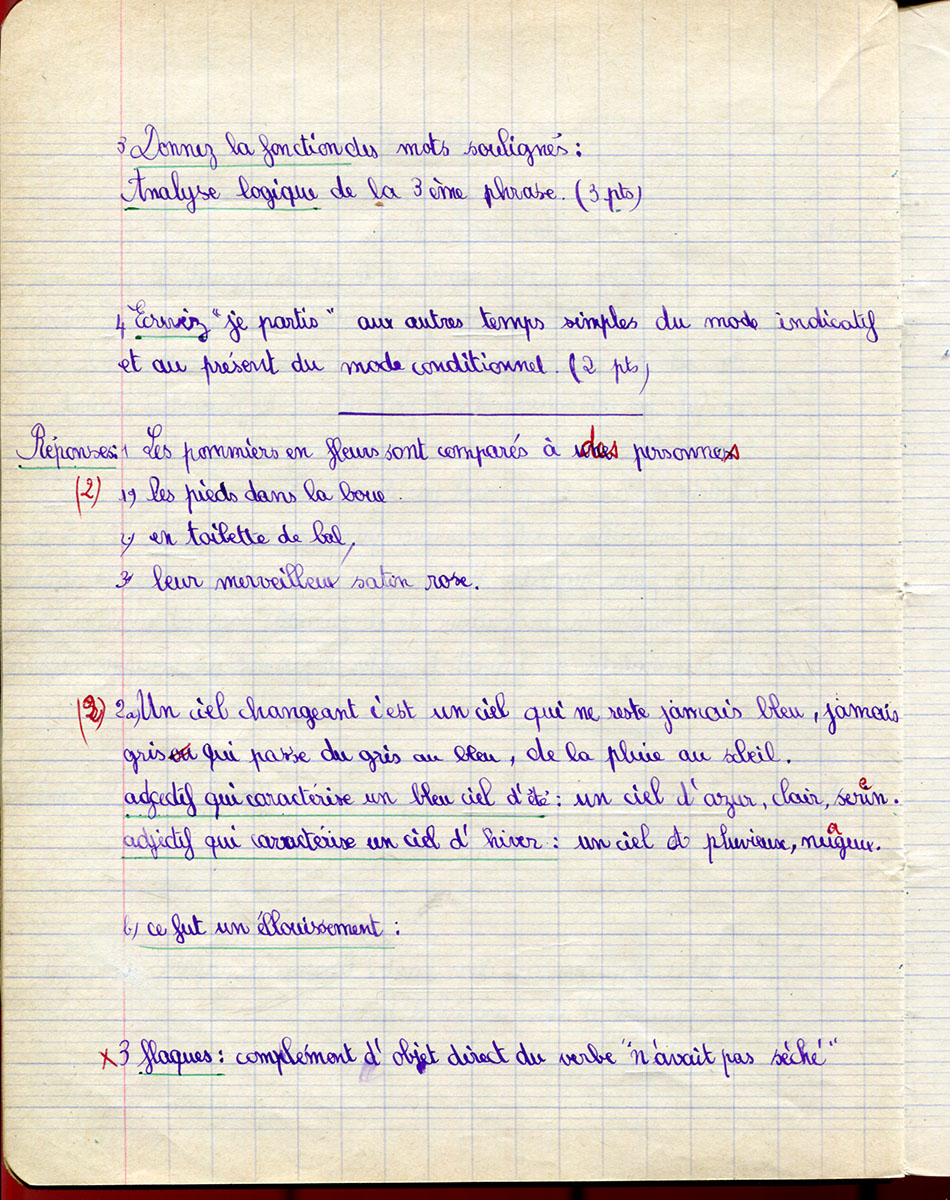 3 Donnez la fonction des mots soulignés :
Analyse logique de la 3 ème phrase. (3 pts)
4 Ecrivez "je partis" aux autres temps simples du mode indicatif
et au présent du mode conditionnel. (2 pts)
Réponses : 1 Les pommiers en fleurs sont comparés à des personnes
(2) 1) les pieds dans la boue.
2) en toilette de bal,
3) leur merveilleux satin rose.
2a) Un ciel changeant c'est un ciel qui ne reste jamais bleu, jamais
gris ou qui passe du gris au bleu, de la pluie au soleil.
adjectif qui caractérise un bleu ciel d'été : un ciel d'azur, clair, serein.
adjectif qui caractérise un ciel d'hiver : un ciel pluvieux, nuageux.
b) ce fut un éblouissement :
x 3 flaques : complément d'objet direct du verbe "n'avait pas séché"